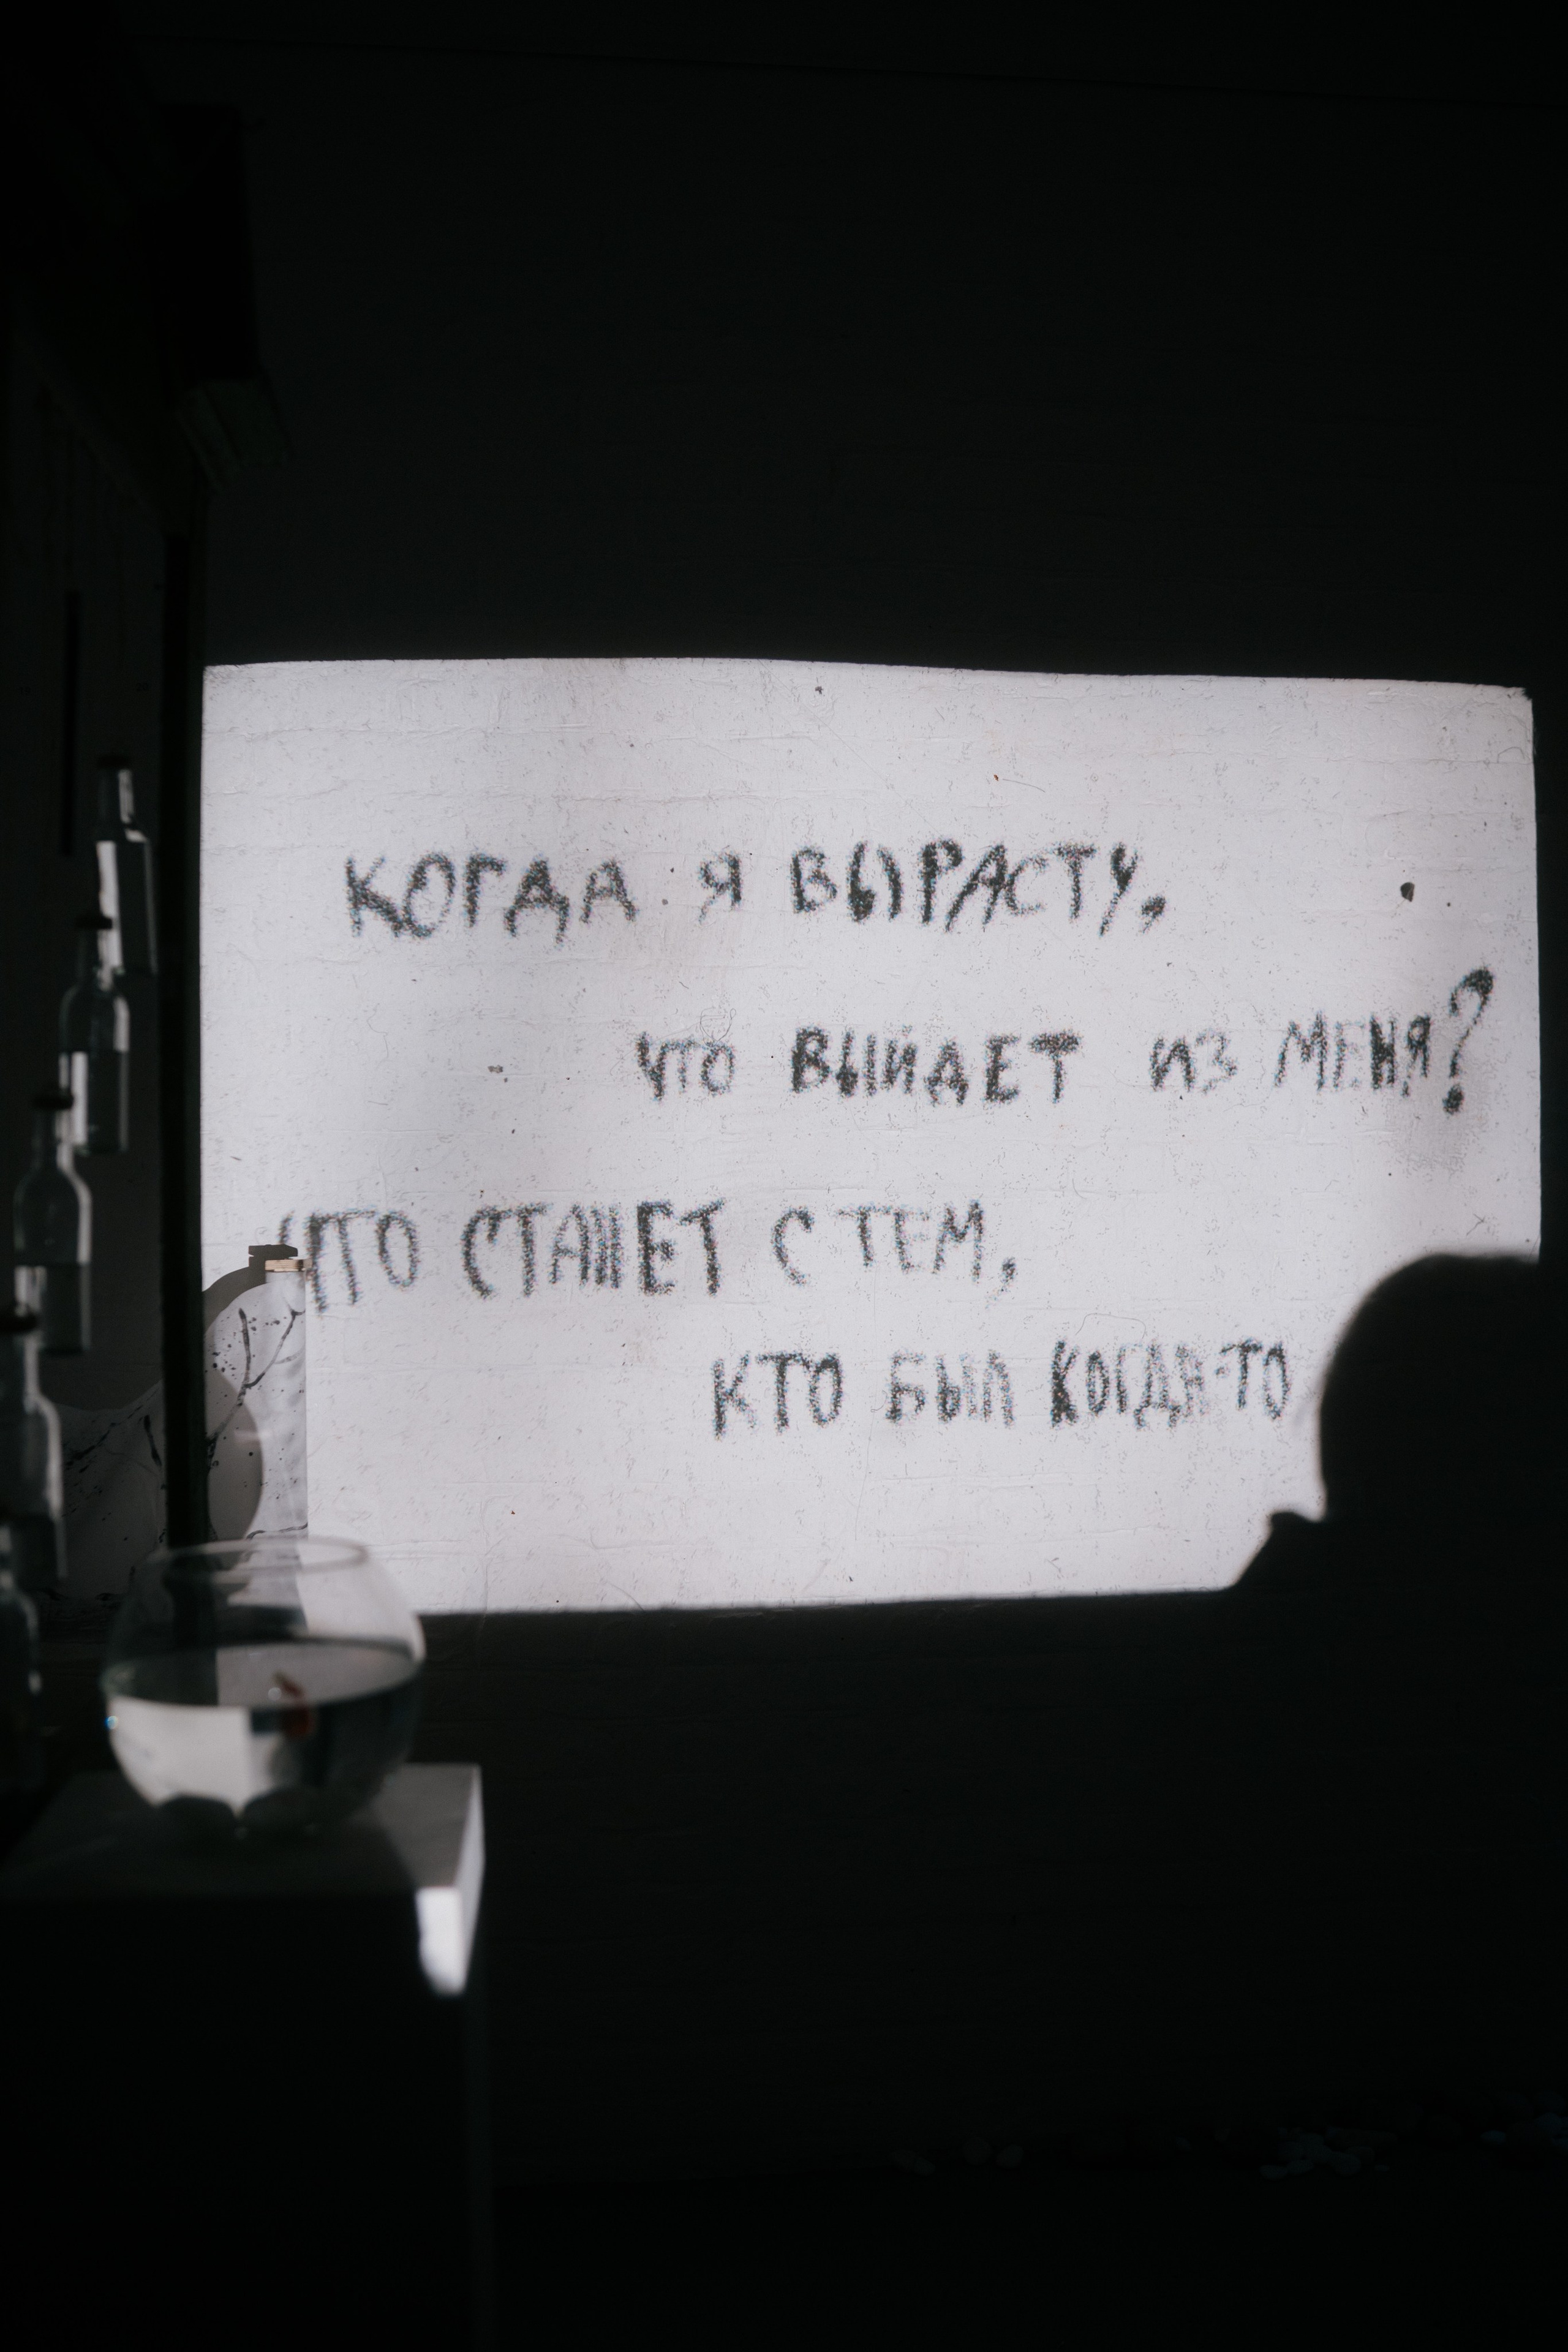 КОГДА Я ВЫРАСТУ,
ЧТО ВЫЙДЕТ ИЗ МЕНЯ?
ЧТО СТАНЕТ С ТЕМ,
КТО БЫЛ КОГДА-ТО